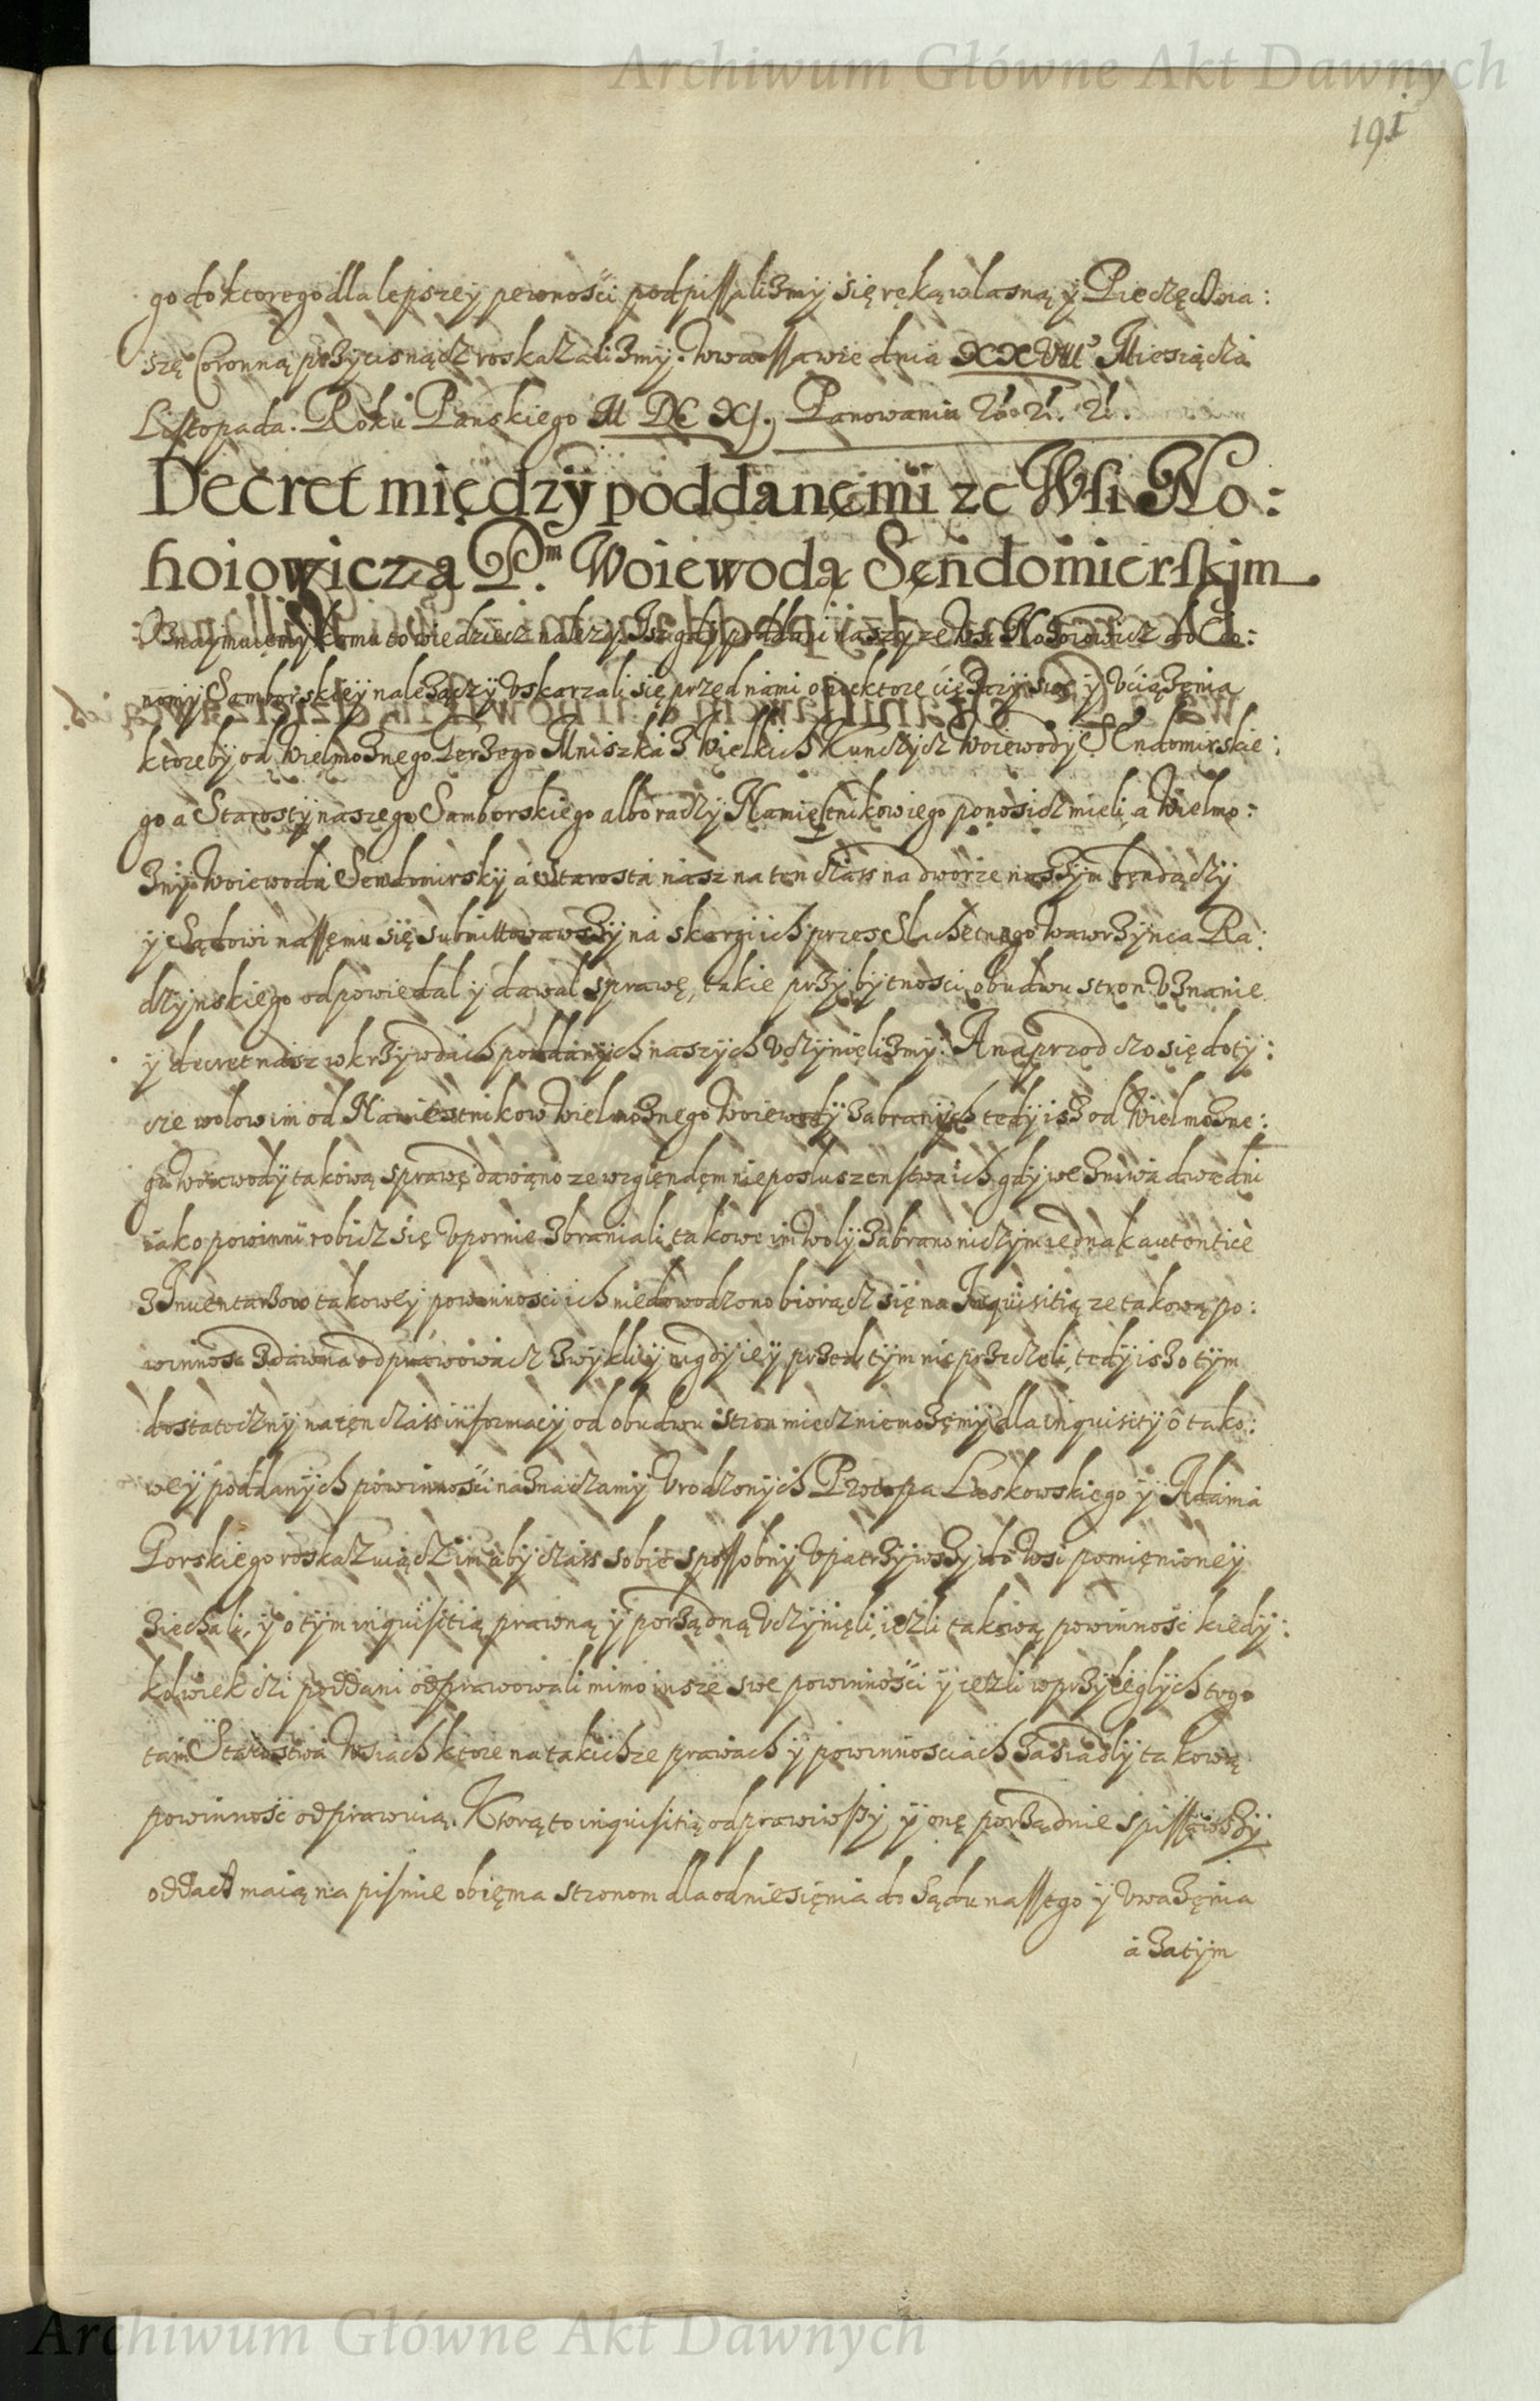 Archiwum Główne Akt Dawnych
191
go do ktorego dla lepszey pewnosci podpissalizmy się ręką wlasną y Pieczęć na:
szę Coronną przycisnącz roskazalizmy. W Warssawie dnia XXVIII Miesiącza
Listopada. Roku Panskiego M DC XI. Panowania
Decret między poddanęmi ze Wsi No:
hoiowicz a P.m Woiewodą Sęndomierskjm
Oznaymuięmy komu to wiedziecz nalezy. Isz gdy poddani naszy ze Wsi Nohoiowicz do Oeco:
nomÿ Samborskięÿ nalezączÿ Uskarzali się przed nami o niektore y Uciązęnia
ktoreby od Wielmoznego Jerzego Mniszka z Wielkich Kunczycz Woiewody SEndomirskie:
go a Starosty naszego Samborskiego albo radzy Namięstnikow iego ponosicz mieli, a Wielmo:
znÿ Woiewoda Sendomirskÿ a Starosta nasz na ten czass na dworze naszÿm bęndączÿ
ÿ Sądowi nassęmu się submittowawszÿ na skargi ich przes Slachetnego Wawrzynca Ra:
dzÿnskiego odpowiedal y dawal sprawę, takie przy bytnosci obudwu stron Uznanie
ÿ decret nasz w krzywdach poddanych naszych Uczynięlizmy. A naprzod czo się doty:
cze wolow im od Namiestnikow Wielmoznego Woiewody zabranych tedy isz od Wielmozne:
go Woiewody takową sprawę dawano ze wzglęndęm nieposluszenstwa ich gdy we zniwa dwa dni
iako powinni robicz się Upornie zbraniali takowe im Wolÿ zabrano niczym iednak autentice
z Inventarzow takowey powinnosci ich niedowodzono biorącz się na Inquisitią ze takową po:
winnosc zdawna odprawowacz zwykli y nigdy iey przed tym nie przeczeli, tedy isz o tÿm
dostatecznÿ na tęn czass informacÿ od obudwu stron miecz niemozęmy dla inquisitÿ o tako:
wey poddanych powinnosci naznaczamy Urodzonych Procopa Laskowskiego y Adama
Gorskiego roskazuiącz im aby czass sobie spossobny Upatrzywszy do Wsi pomięnioney
ziechali, y o tym inquisitią prawną y porządną Uczynięli, iezli takową powinnosc kiedy:
kolwiek czi poddani odprawowali mimo insze swe powinnosci y iezli w przyleglych tego
tam Starostwa Wsiach ktore na takichze prawach y powinnosciach zasiadly takową
powinnosc odprawuią. Ktorą to inquisitią odprawiwszy, y onę porządnie spissawszÿ
oddacz maią na pismie obięma stronom dla odniesięnia do Sądu nassego y Uwazęnia
a zatym
Archiwum Główne Akt Dawnych